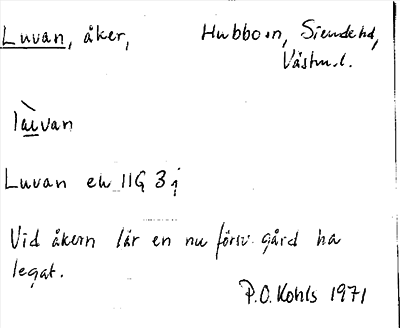 Luvan, åker, Hubbo sn, Siende hd,
Västm. l.
lùvan
Luvan ek 11G 3 j
Vid åkern lär en nu försv. gård ha
legat.
P.O. Kohls 1971